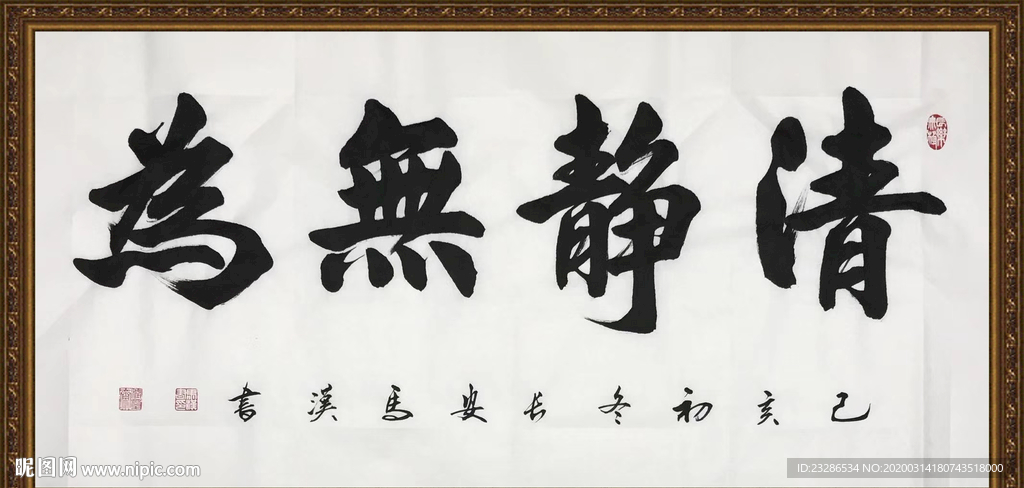 清靜無為
己亥初冬長安馬漢書
昵图网 www.nipic.com
ID:23286534 NO:20200314180743518000